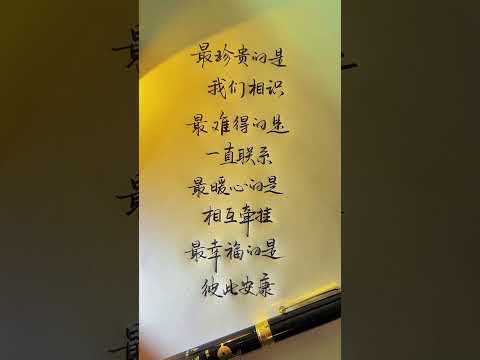 最珍贵的是
我们相识
最难得的是
一直联系
最暖心的是
相互牵挂
最幸福的是
彼此安康